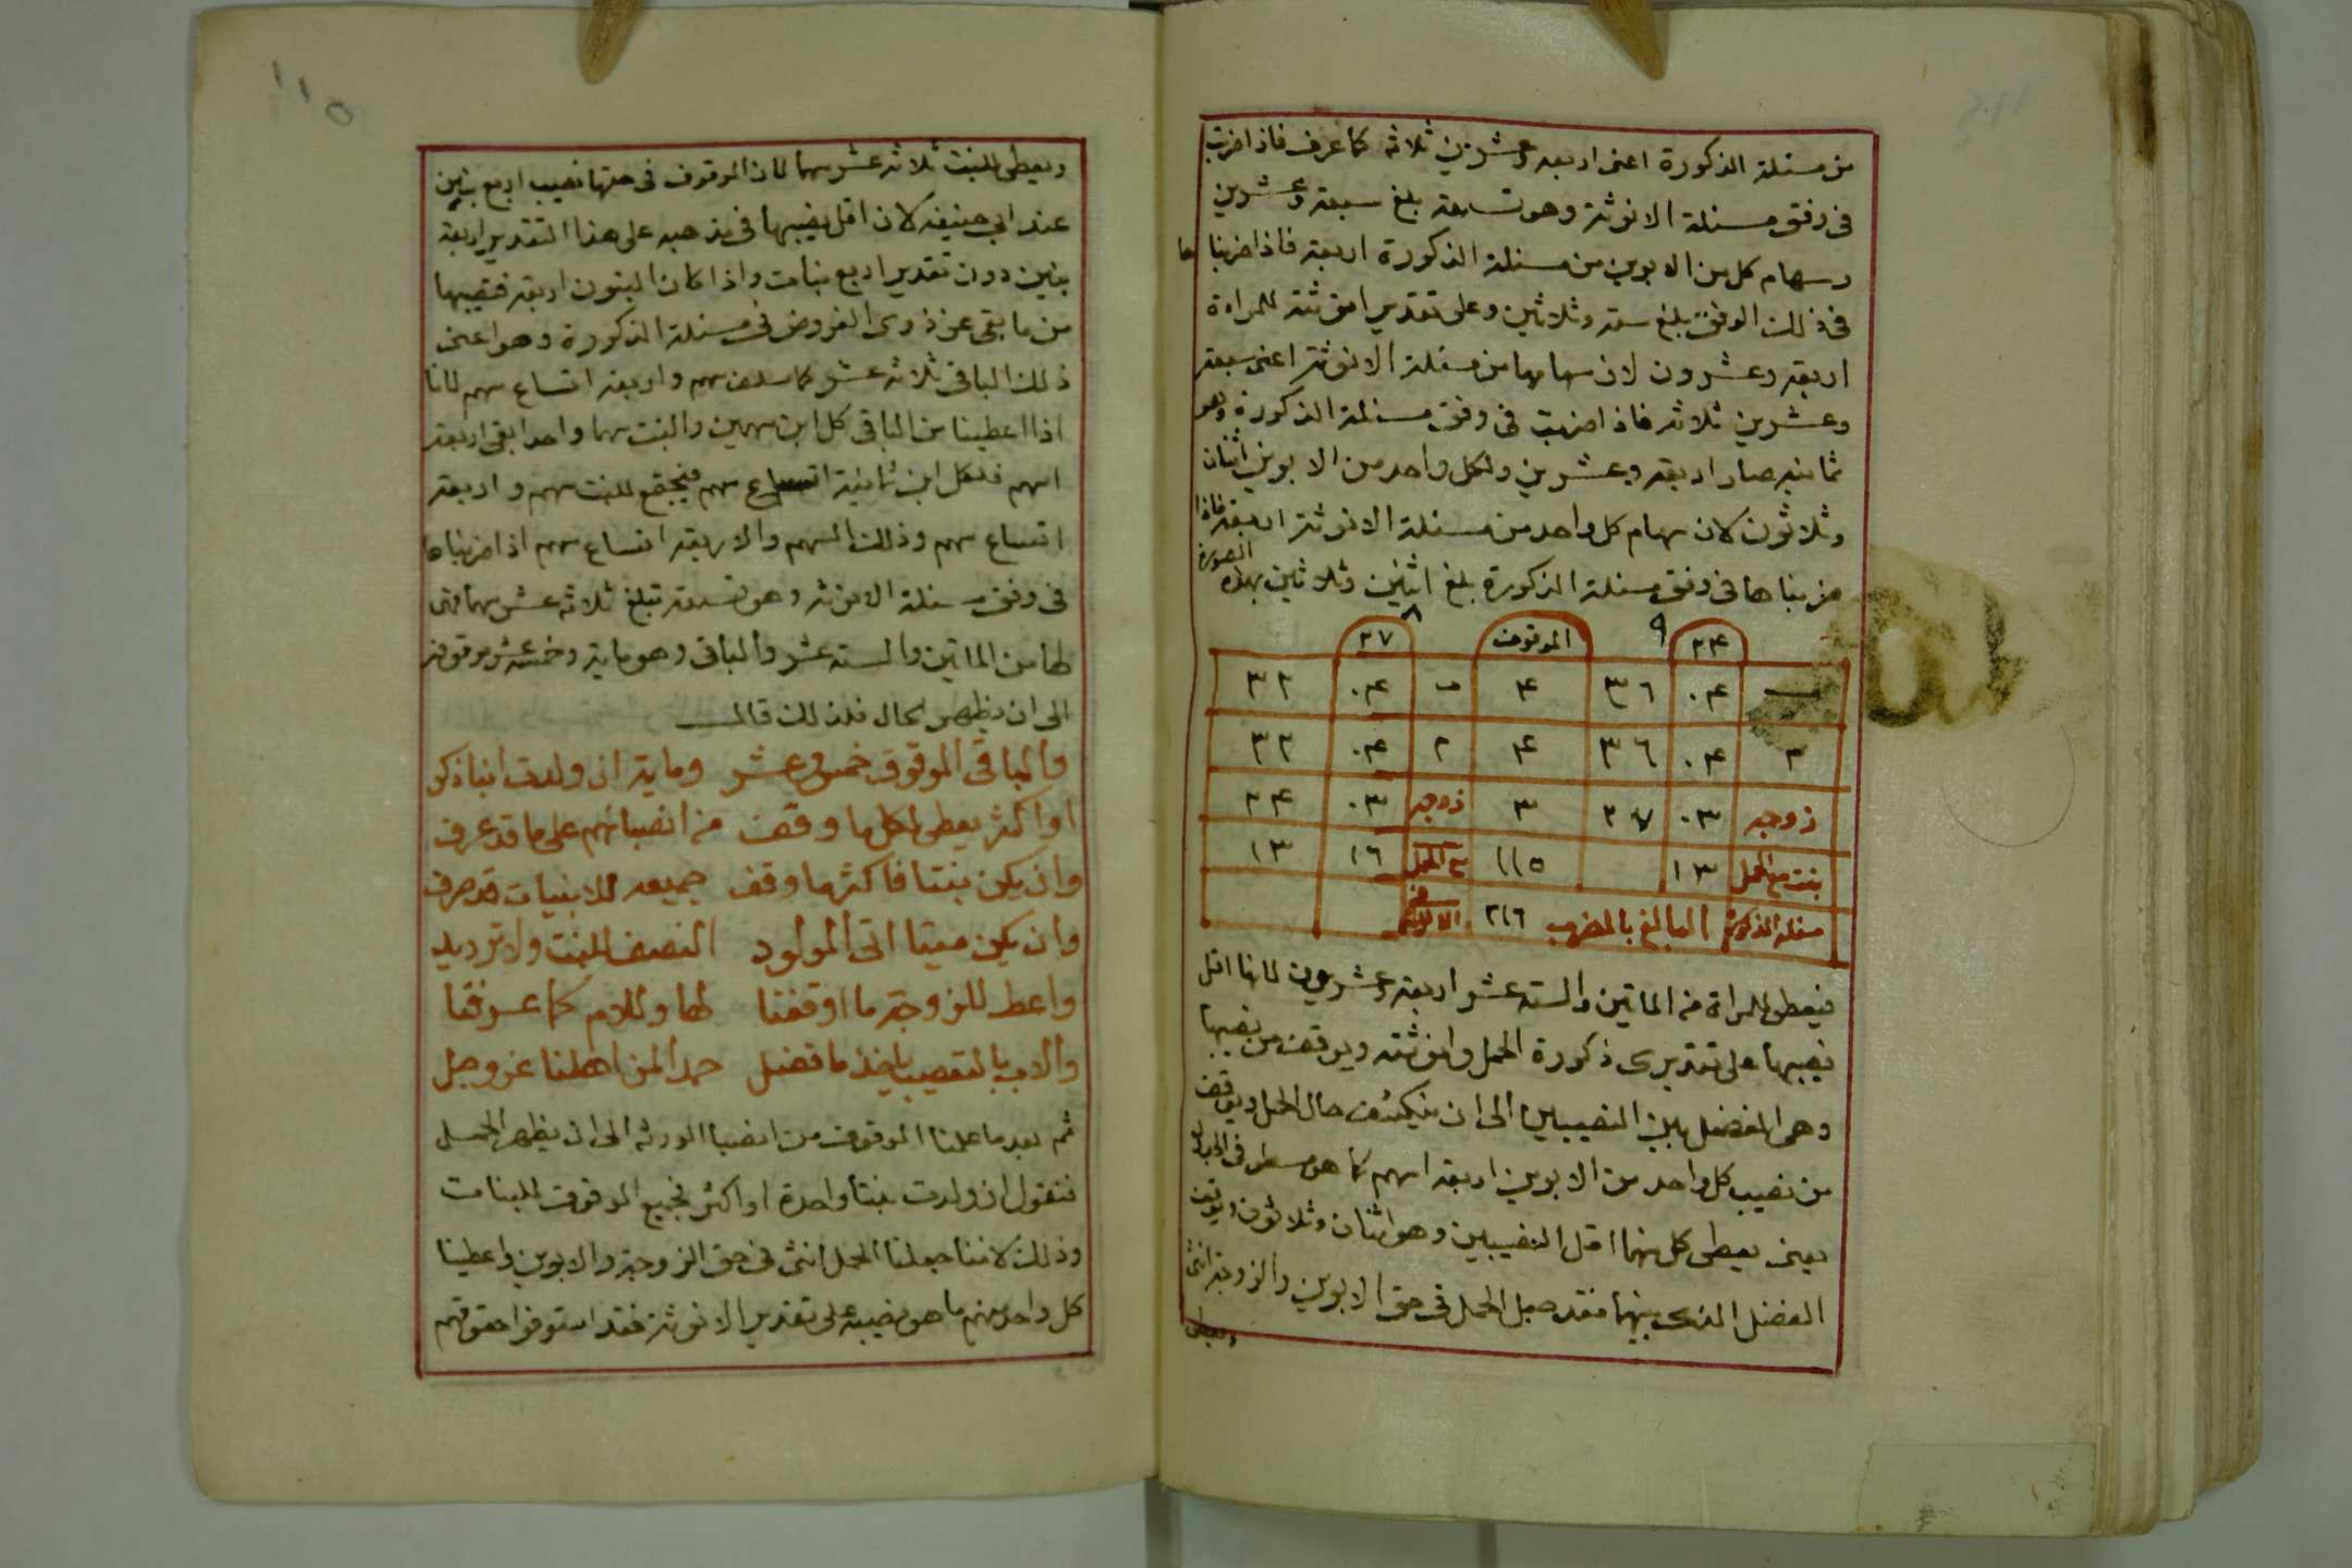 من مسئلة الذكورة اعنى اربعه وعشرين ثلاثه كما عرف فاذا ضربت
فى وفق مسئلة الانوثة وهو تسعة بلغ سبعة وعشرين
وسهام كل من الابوين من مسئلة الذكورة اربعة فاذا ضربنا ها
فى ذلك الوفق بلغ ستة وثلاثين وعلى تقدير انوثته للمراة
اربعة وعشرون لان سهامها من مسئلة الانوثة اعنى سبعة
وعشرين ثلاثه فاذا ضربت فى وفق مسئلة الذكورة وهو
ثمانيه صار اربعه وعشرين ولكل واحد من الابوين اثنان
وثلاثون لان سهام كل واحد من مسئلة الانوثة اربعة فاذا
ضربناها فى وفق مسئلة الذكورة بلغ اثنين وثلاثين بهذه الصورة
٢٤ ٩ الموقوف ٨ ٢٧
ب ٠٤ ٣٦ ٤ ب ٠٤ ٣٢
م ٠٤ ٣٦ ٤ م ٠٤ ٣٢
زوجه ٠٣ ٢٧ ٣ زوجه ٠٣ ٢٤
بنت مع الحمل ١٣ ١١٥ مع الحمل ١٦ ١٣
مسئلة الذكورة البالغ بالضرب ٢١٦
فيعطى للمراة من الماتين والسته عشر اربعة وعشرين لانها اقل
نصيبها على تقديرى ذكورة الحمل وانوثته ويوقف من نصيبها
وهى الفضل بين النصيبين الى ان ينكشف حال الحمل ويوقف
من نصيب كل واحد من الابوين اربعة اسهم كما هو مسطر فى الجدول
يعنى يعطى كل منهما اقل النصيبين وهو اثنان وثلاثون ويوقف
الفضل الذى بينهما فقد جعل الحمل فى حق الابوين والزوجة انثى
ويعطى
١١٥
ويعطى للبنت ثلاثه عشر سهما لان الموقوف فى حقها نصيب اربع بنين
عند ابي حنيفه لان اقل نصيبها فى مذهبه على هذا التقدير اربعة
بنين دون تقدير اربع بنات واذا كان البنون اربعة فنصيبها
من ما بقى عن ذوى الفروض فى مسئلة الذكورة وهو اعنى
ذلك الباقى ثلاثه عشر كما سلف سهم واربعة اتساع سهم لانا
اذا اعطينا من الباقى كل ابن سهمين والبنت سهما واحدا بقى اربعة
اسهم فلكل ابن ثمانية اتساع سهم فيجتمع للبنت سهم واربعة
اتساع سهم وذلك السهم والاربعة اتساع سهم اذا ضربناها
فى وفق مسئلة الانوثه وهو تسعة تبلغ ثلاثه عشر سهما فهى
لها من الماتين والسته عشر والباقى وهو ماية وخمسة عشر موقوفة
الى ان يظهر الحال فلذلك قال
والباقى الموقوف خمس وعشر وماية ان ولدت ابنا ذكر
او اكثر يعطى لكل ما وقف من انصبائهم على ما قد عرف
وان يكن بنتا فاكثر ما وقف جميعه للابنيات قد صرف
وان يكن ميتا اتى المولود النصف للبنت ولا ترديد
واعط للزوجة ما اوقفتا لها وللام كما عرفتا
والاب بالتعصيب ياخذ ما فضل حمدا لمن اهلنا عز وجل
ثم بعد ما علمنا الموقوف من انصبا الورثه الى ان يظهر الحمل
فنقول ان ولدت بنتا واحدة او اكثر فجميع الموقوف للبنات
وذلك لاننا جعلنا الحمل انثى فى حق الزوجة والابوين واعطينا
كل واحد منهم ما هو نصيبه على تقدير الانوثة فقد استوفوا حقوقهم